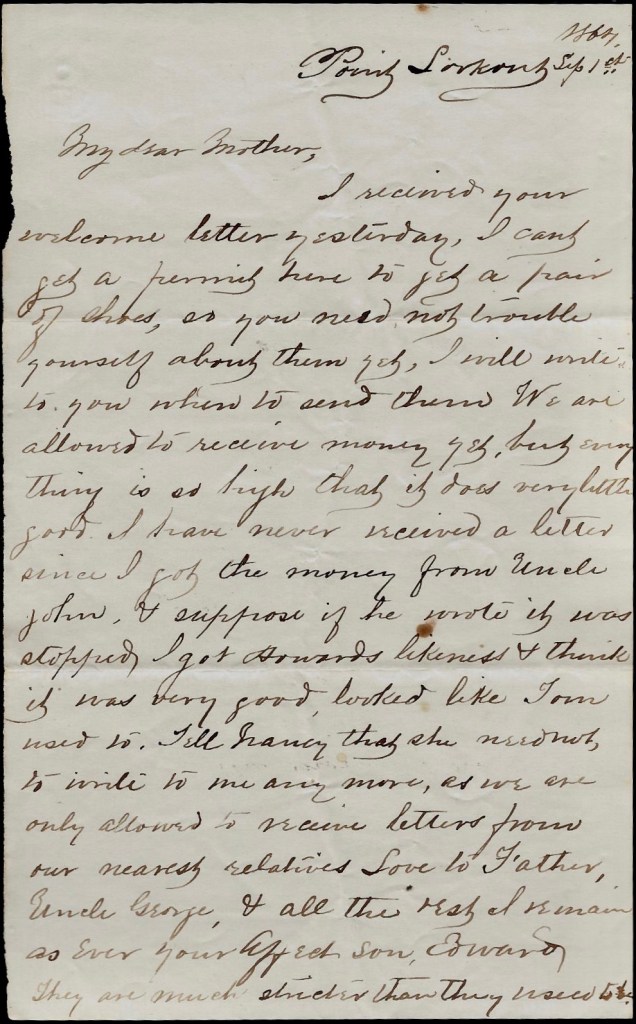 1864.
Point Lookout Sep 1st
My dear Mother,
I received your
welcome letter yesterday, I cant
get a permit here to get a pair
of shoes, so you need not trouble
yourself about them yet, I will write
to you when to send them We are
allowed to receive money yet, but every
thing is so high that it does very little
good. I have never received a letter
since I got the money from Uncle
John, & suppose if he wrote it was
stopped, I got Howards likeness & think
it was very good, looked like Tom
used to. Tell Nancy that she need not,
to write to me any more, as we are
only allowed to receive letters from
our nearest relatives Love to Father,
Uncle George, & all the rest I remain
as Ever your Affect son, Edward
They are much stricter than they used to be